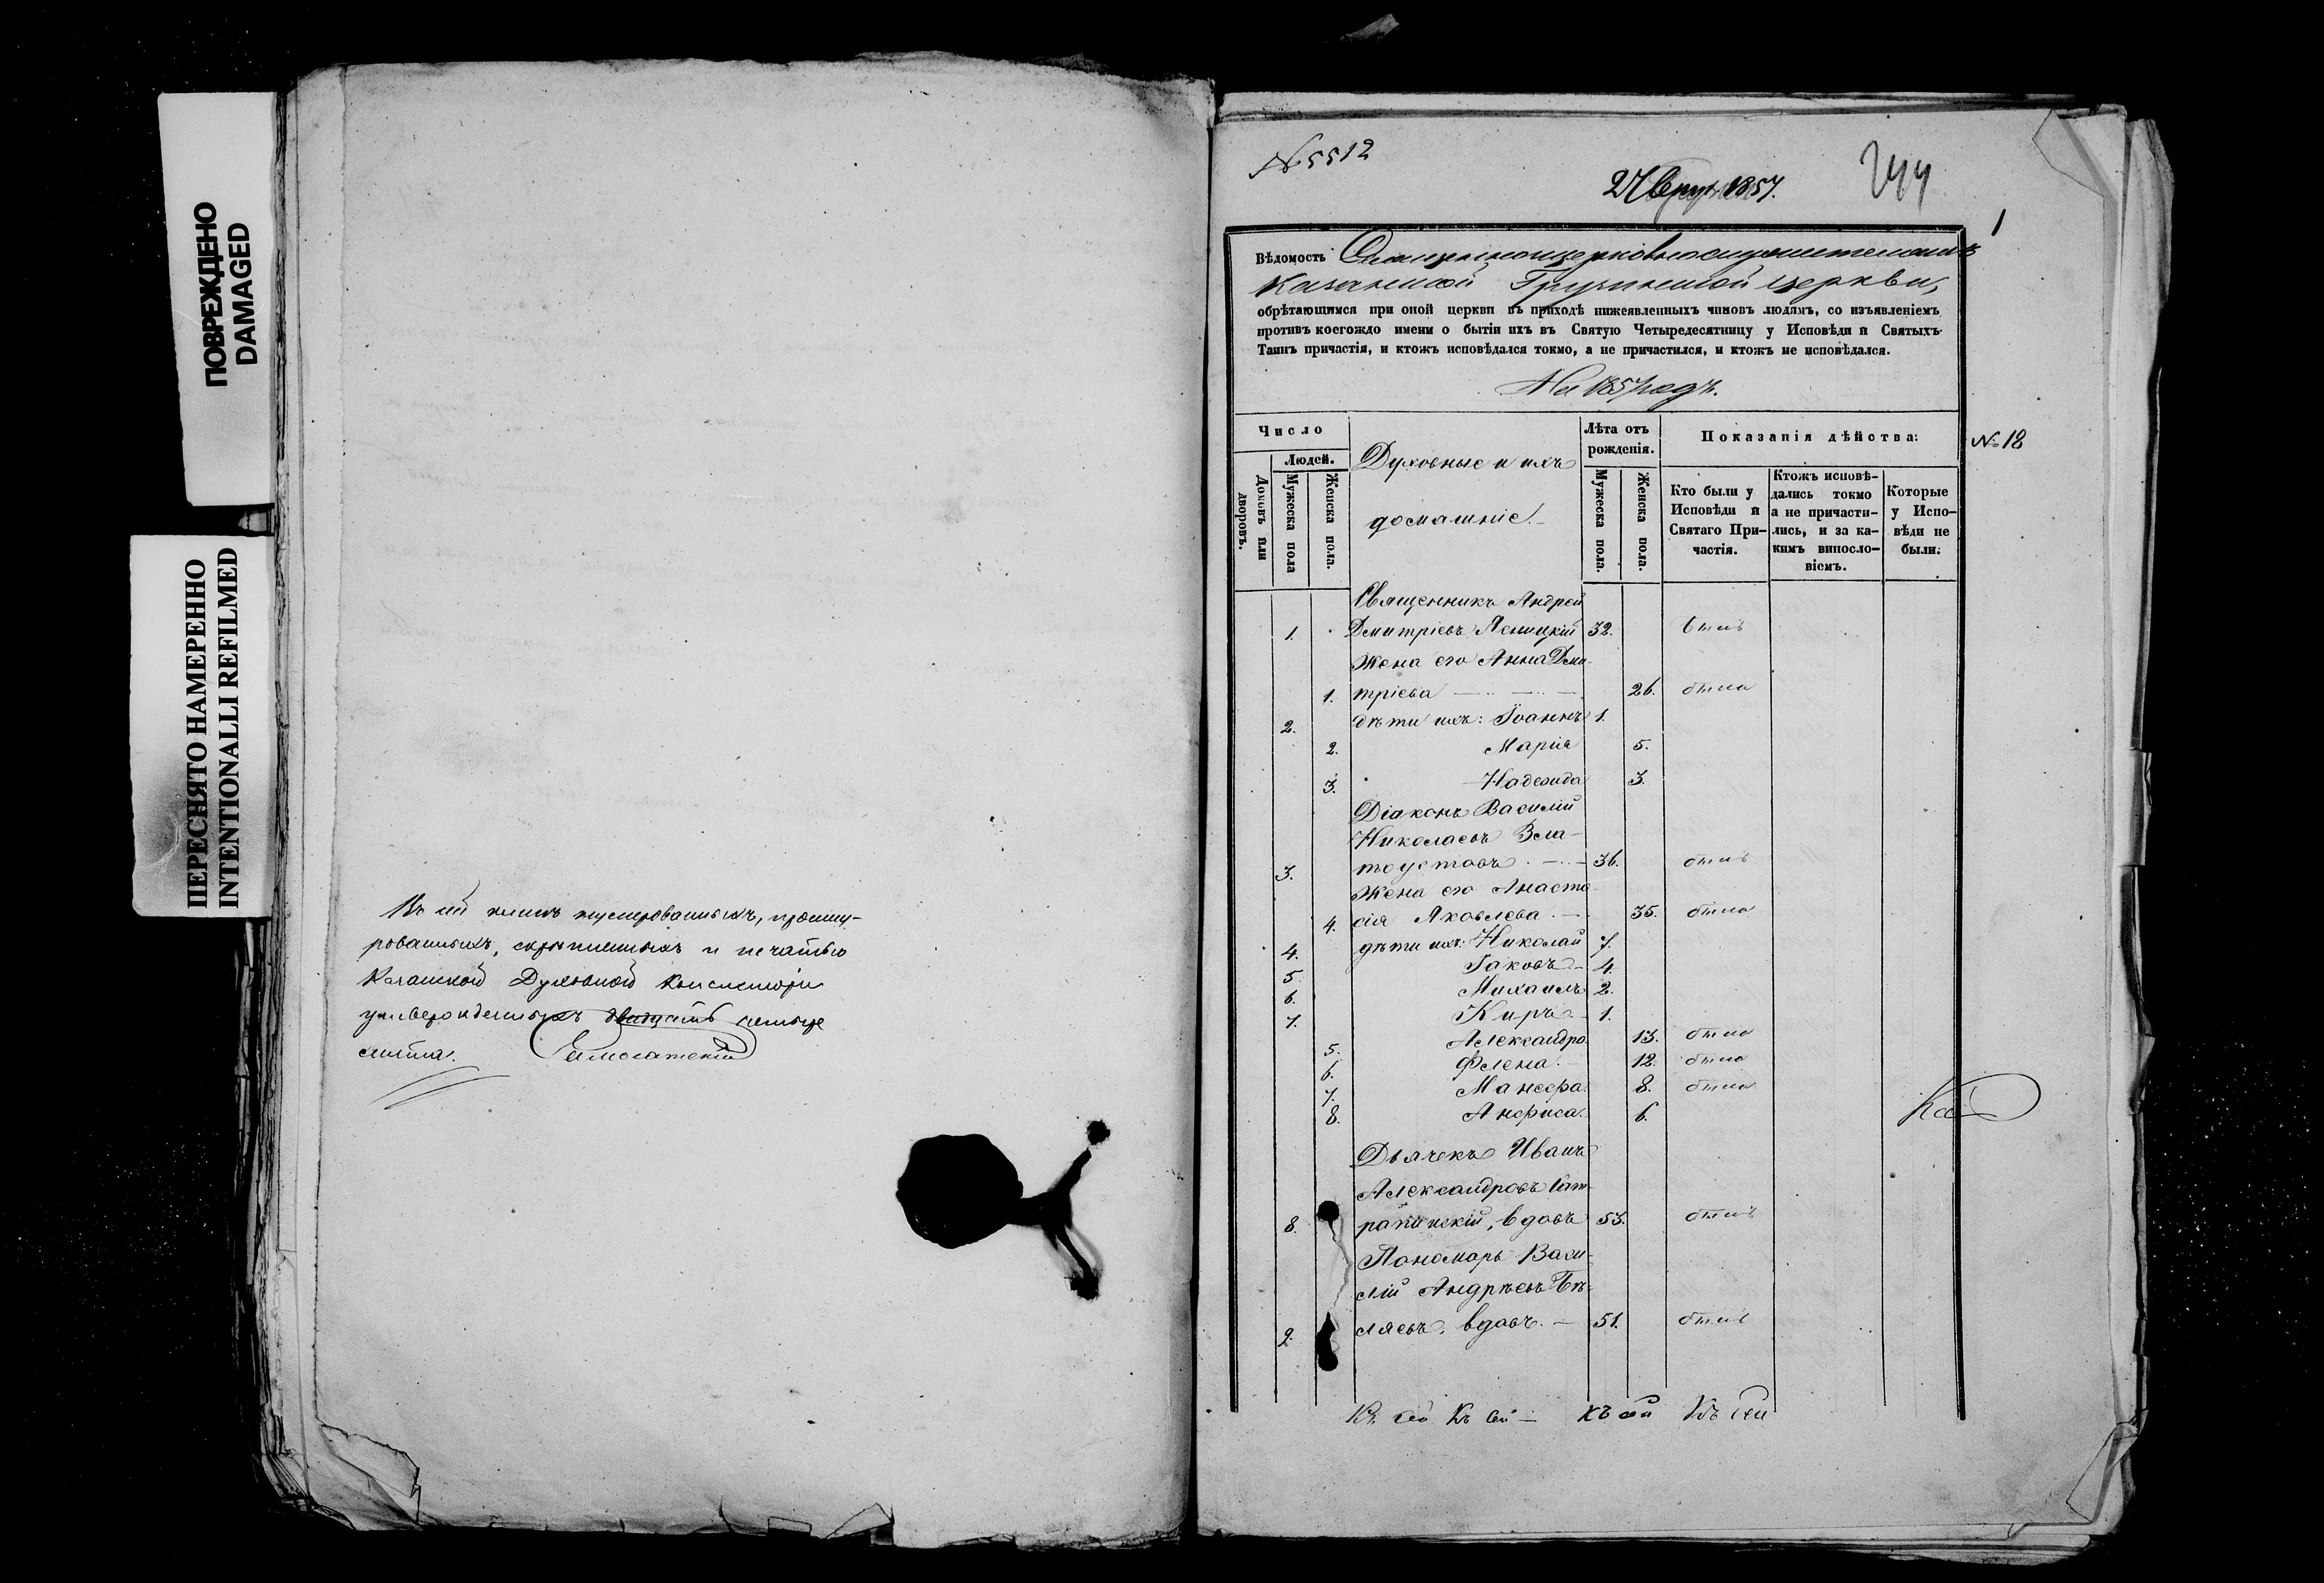 ПОВРЕЖДЕНО
DAMAGED
ПЕРЕСНЯТО НАМЕРЕННО
INTENTIONALLI REFILMED
Въ сей книгѣ нумерованныхъ, прошну-
рованныхъ, скрѣпленныхъ и печатью
Казанской Духовной Консисторіи
утвержденныхъ двадцать четыре
листа.
№ 5512
1857.
1
Вѣдомость
Казанской Грузинской церкви,
обрѣтающимся при оной церкви въ приходѣ нижеявленныхъ чиновъ людямъ, со изъявленіемъ
противъ коегождо имени о бытіи ихъ въ Святую Четыредесятницу у Исповѣди и Святыхъ
Таинъ причастія, и ктожъ исповѣдался токмо, а не причастился, и ктожъ не исповѣдался.
На 1857 годъ.
№ 18
Число
Людей.
Домовъ или дворовъ.
Мужеска пола
Женска пола.
Духовные и ихъ
домашніе.
Лѣта отъ рожденія.
Мужеска пола.
Женска пола.
Показанія дѣйства:
Кто были у Исповѣди и Святаго При-частія.
Ктожъ исповѣ-дались токмо а не причасти-лись, и за ка-кимъ виносло-віемъ.
Которые у Испо-вѣди не были.
Священникъ Андрей
1. Дмитріевъ 32. былъ
Жена его Анна Дми-
1. тріева 26. была
2. дѣти ихъ: Іоаннъ 1.
2. Марія 5.
3. Надежда 3.
Діаконъ Василій
Николаевъ Зла-
3. тоустовъ 36. былъ
Жена его Анаста-
4. сія Яковлева 35. была
4. дѣти ихъ: Николай 7.
5. Іаковъ 4.
6. Михаилъ 2.
7. Киръ 1.
5. Александра 13. была
6. Флена. 12. была
7. Манефа. 8. была
8. Анфиса. 6.
Дьячекъ Иванъ
Александровъ Сат-
8. рапинскій, вдовъ 53. былъ
Пономарь Васи-
лій Андреевъ Бѣ-
9. ляевъ, вдовъ. 51. былъ
Къ сей Къ сей Къ сей Къ сей